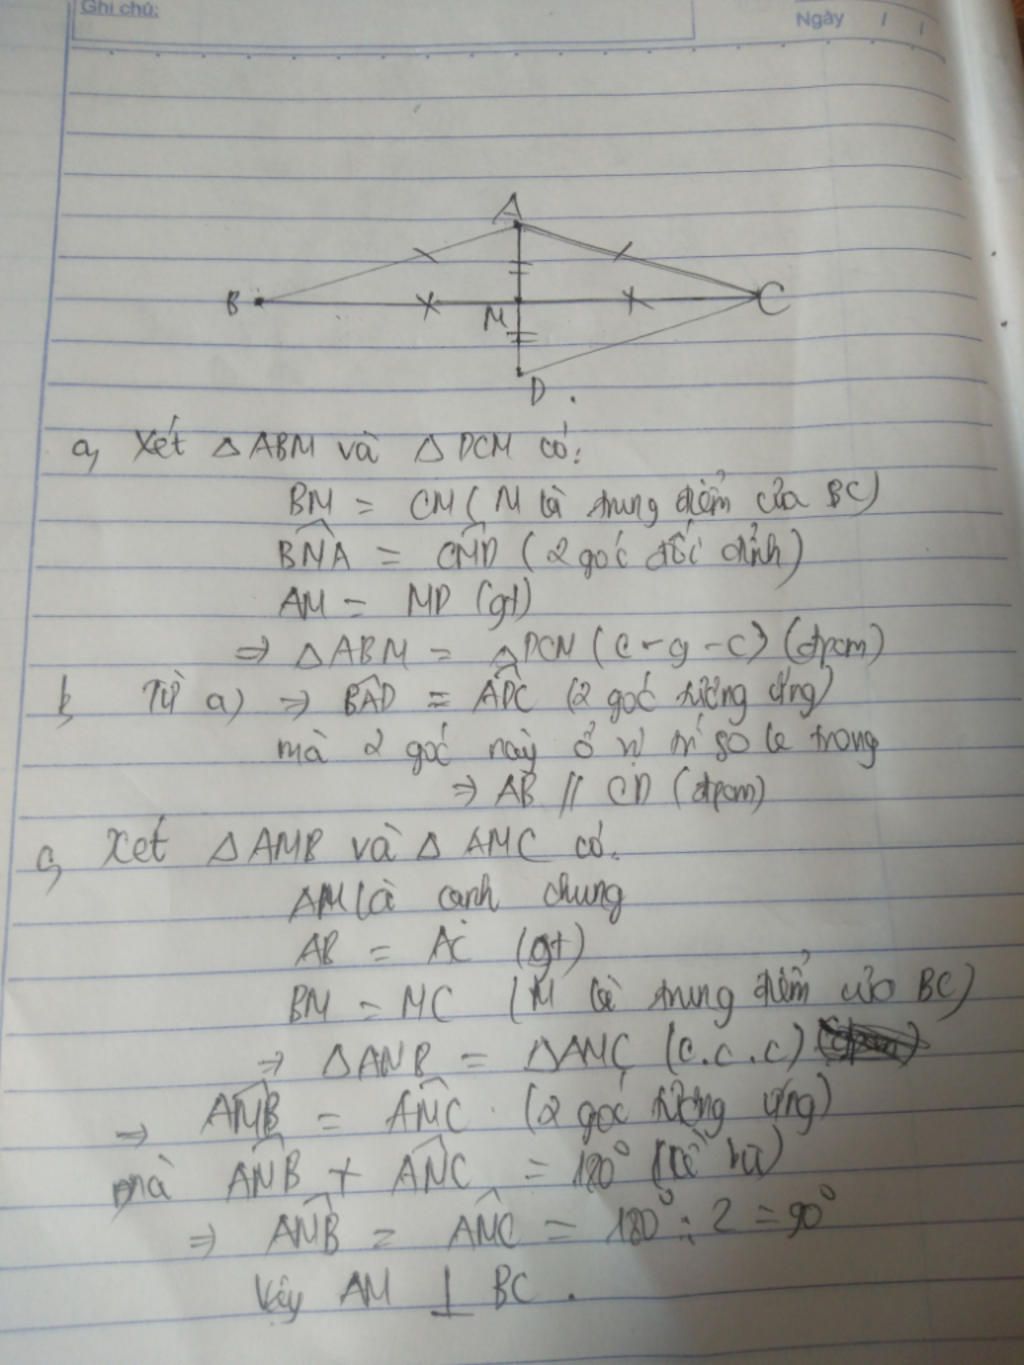 Ghi chú:
Ngày / /
A
B
M
C
D.
a, Xét △ABM và △DCM có:
BM = CM (M là trung điểm của BC)
BMA = CMD (2 góc đối đỉnh)
AM = MD (gt)
⇒ △ABM = △DCM (c-g-c) (đpcm)
b, Từ a) ⇒ BAD = ADC (2 góc tương ứng)
mà 2 góc này ở vị trí so le trong
⇒ AB // CD (đpcm)
c, Xét △AMB và △ AMC có:
AM là cạnh chung
AB = AC (gt)
BM = MC (M là trung điểm của BC)
⇒ △AMB = △AMC (c.c.c)
⇒ AMB = AMC. (2 góc tương ứng)
mà AMB + AMC = 180° (kề bù)
⇒ AMB = AMC = 180° : 2 = 90°
Vậy AM ⊥ BC.